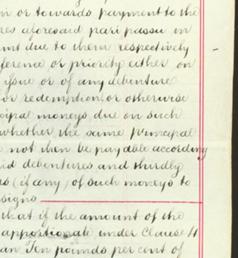 n or towards payment to the
res aforesaid pari passu in
unt due to them respectively
ference or priority either on
issue or of any debenture
or redemption or otherwise
cipal moneys due on such
whether the same principal
not then be payable according
id debentures and thirdly
rs (if any) of such moneys to
signs
that if the amount of the
apportionable under Clause 4
an Ten pounds per cent of